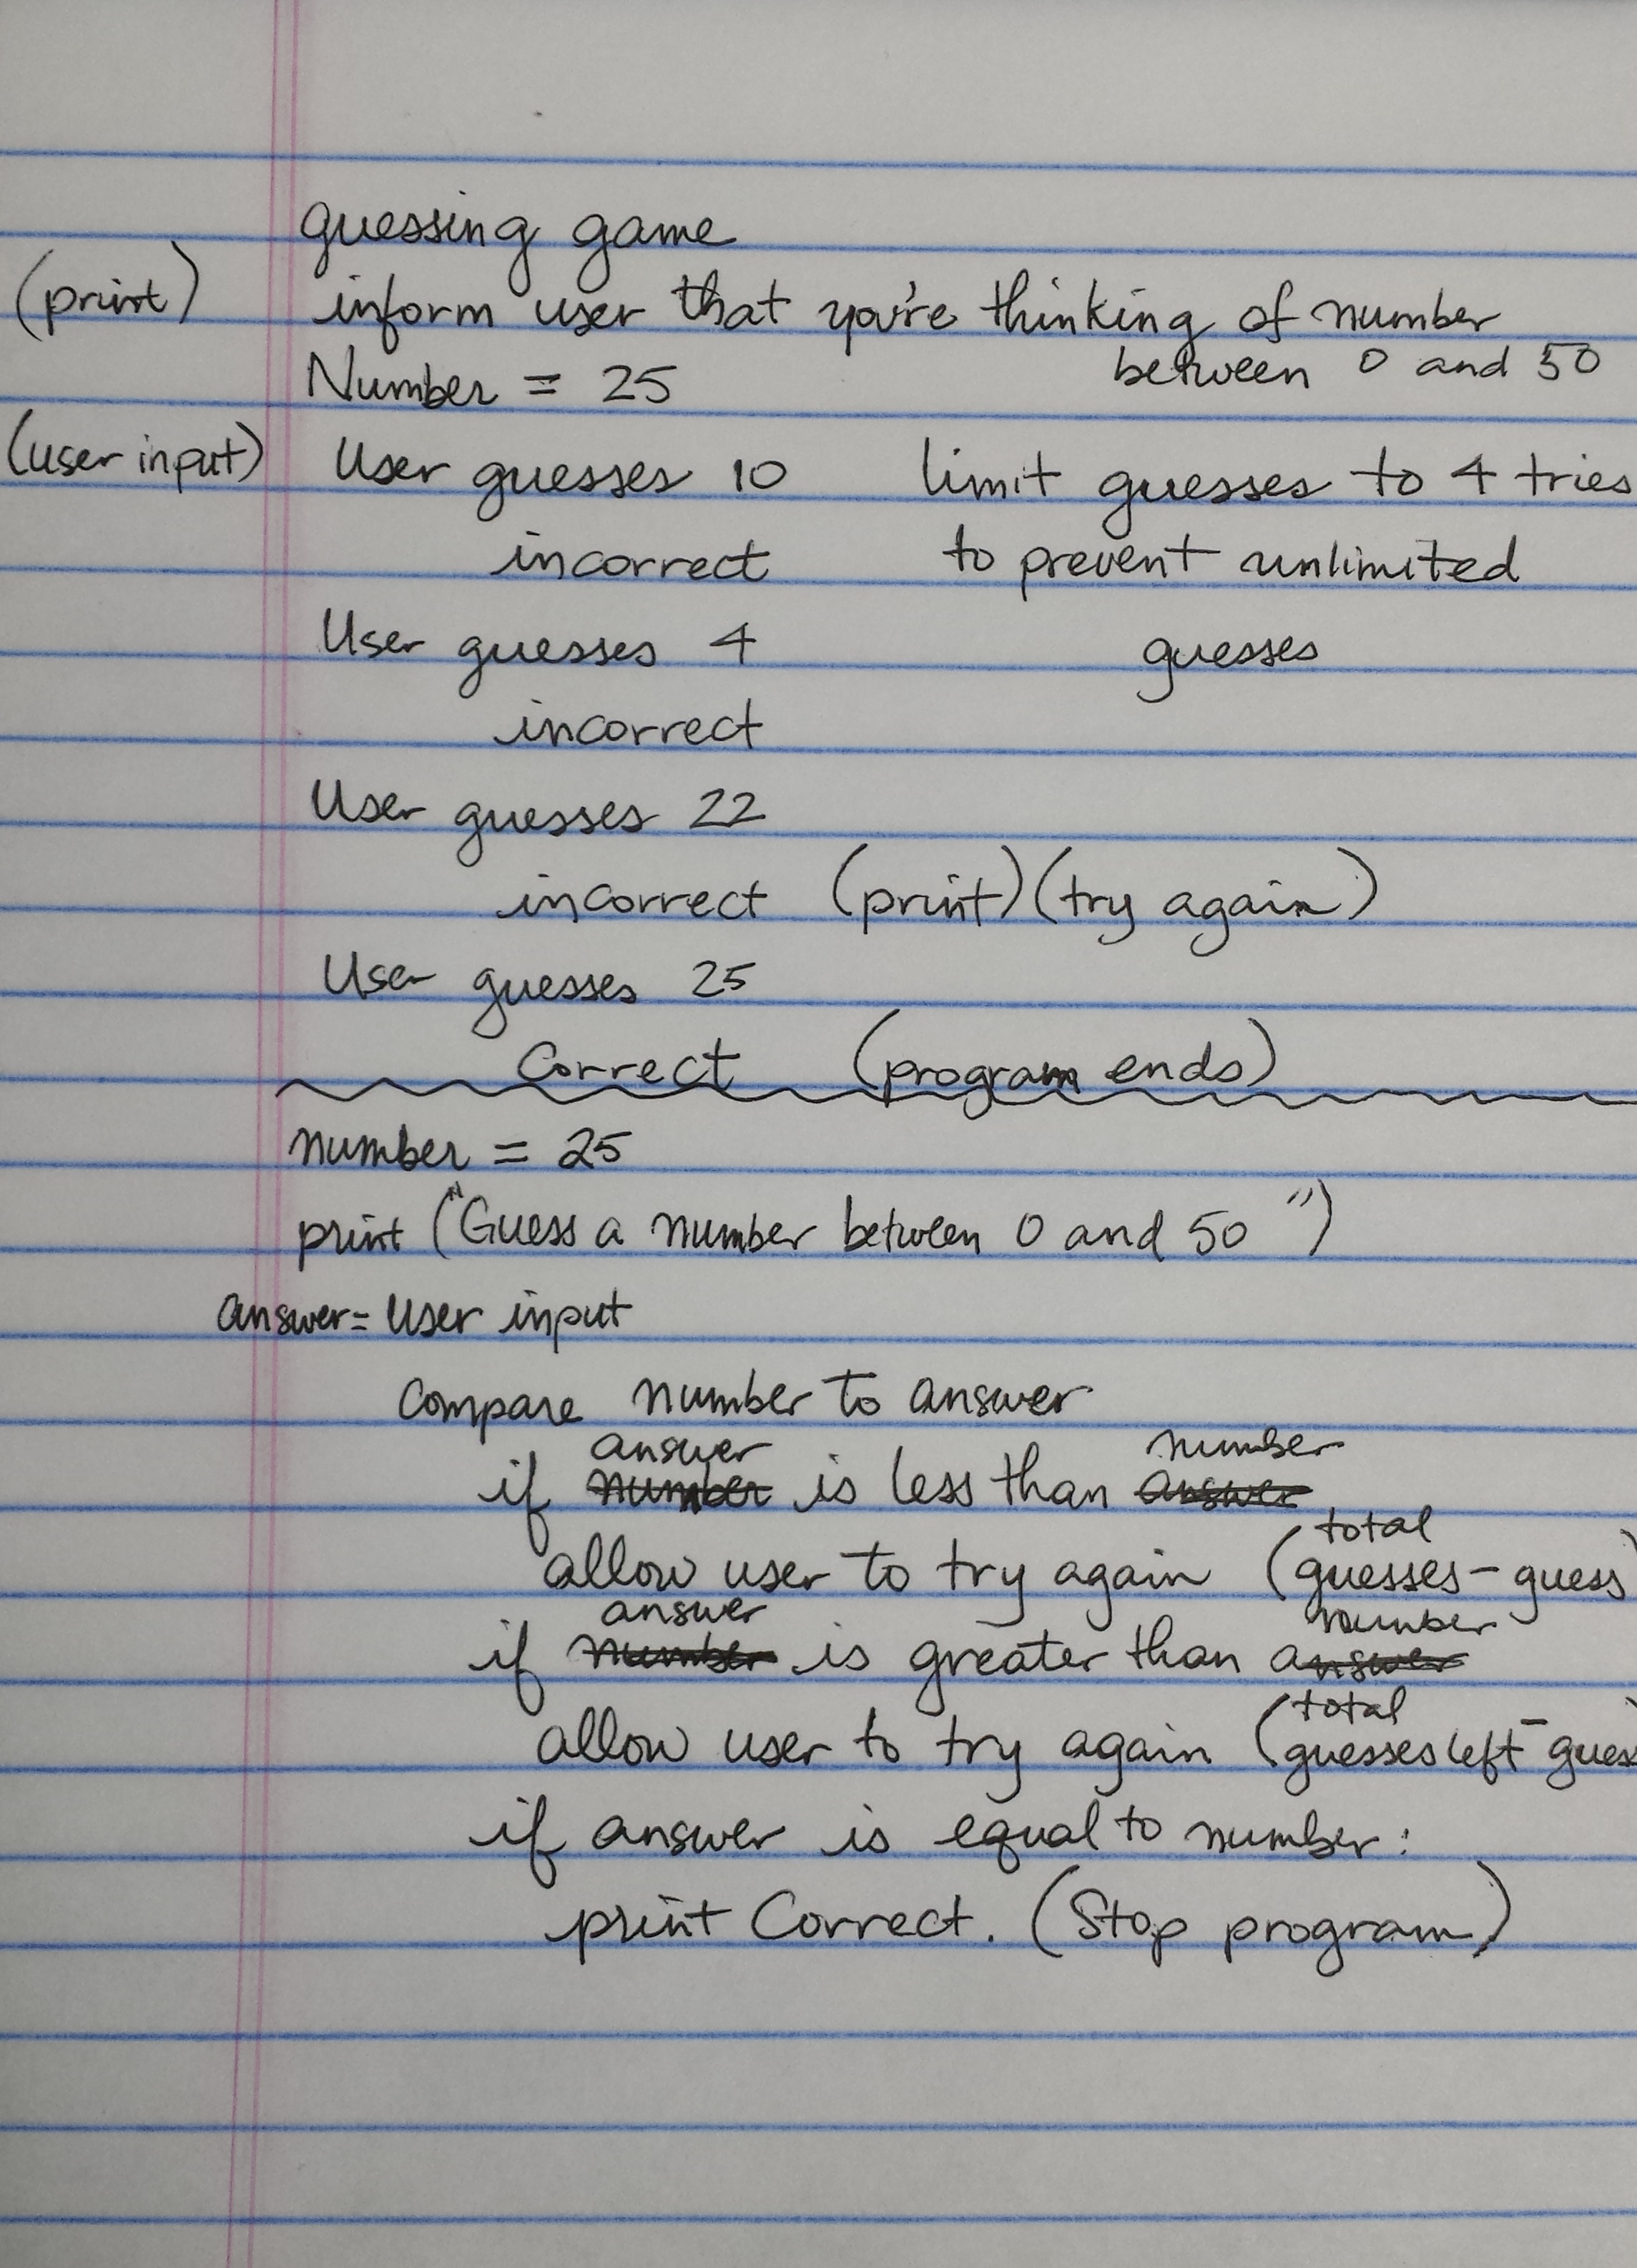 guessing game
(print) inform user that you're thinking of number
Number = 25 between 0 and 50
(user input) User guesses 10 limit guesses to 4 tries
incorrect to prevent unlimited
User guesses 4 guesses
incorrect
User guesses 22
incorrect (print) (try again)
User guesses 25
Correct (program ends)
number = 25
print ("Guess a number between 0 and 50")
answer = user input
Compare number to answer
answer number
if number is less than answer
total
allow user to try again (guesses - guess)
answer number
if number is greater than answer
total
allow user to try again (guesses left - guess)
if answer is equal to number:
print Correct. (Stop program)